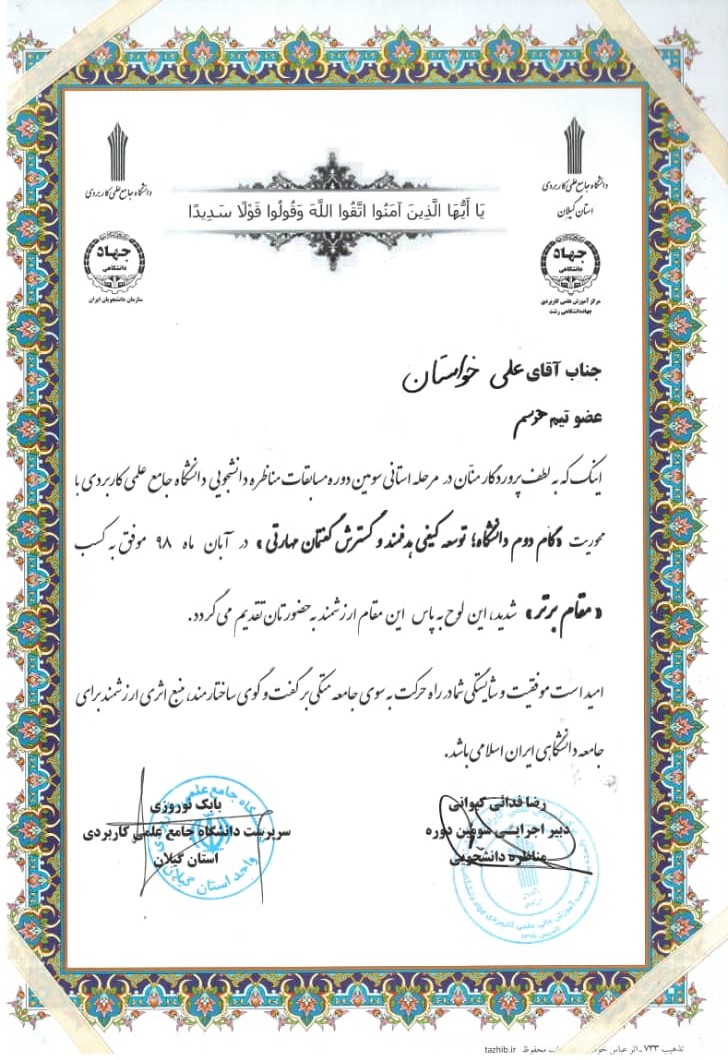 دانشگاه جامع علمی کاربردی
استان گیلان
جهاد
دانشگاهی
مرکز آموزش علمی کاربردی
جهاددانشگاهی رشت
یَا أَیُّهَا الَّذِینَ آمَنُوا اتَّقُوا اللَّهَ وَقُولُوا قَوْلًا سَدِیدًا
دانشگاه جامع علمی کاربردی
جهاد
دانشگاهی
سازمان دانشجویان ایران
جناب آقای علی خواستان
عضو تیم
اینک که به لطف پروردگار منّان در مرحله استانی سومین دوره مسابقات مناظره دانشجویی دانشگاه جامع علمی کاربردی با
محوریت «گام دوم دانشگاه؛ توسعه کیفی هدفمند و گسترش گفتمان مهارتی» در آبان ماه ۹۸ موفق به کسب
«مقام برتر» شدید، این لوح به پاس این مقام ارزشمند به حضورتان تقدیم می گردد.
امید است موفقیت و شایستگی شما در راه حرکت به سوی جامعه متکی بر گفت و گوی ساختارمند، منبع اثری ارزشمند برای
جامعه دانشگاهی ایران اسلامی باشد.
رضا فدائی کیوانی
دبیر اجرایی سومین دوره
مناظره دانشجویی
بابک نوروزی
سرپرست دانشگاه جامع علمی کاربردی
استان گیلان
دانشگاه جامع علمی کاربردی
واحد استان گیلان
تذهیب ۷۳۳ - اثر عباس محفوظ tazhib.ir